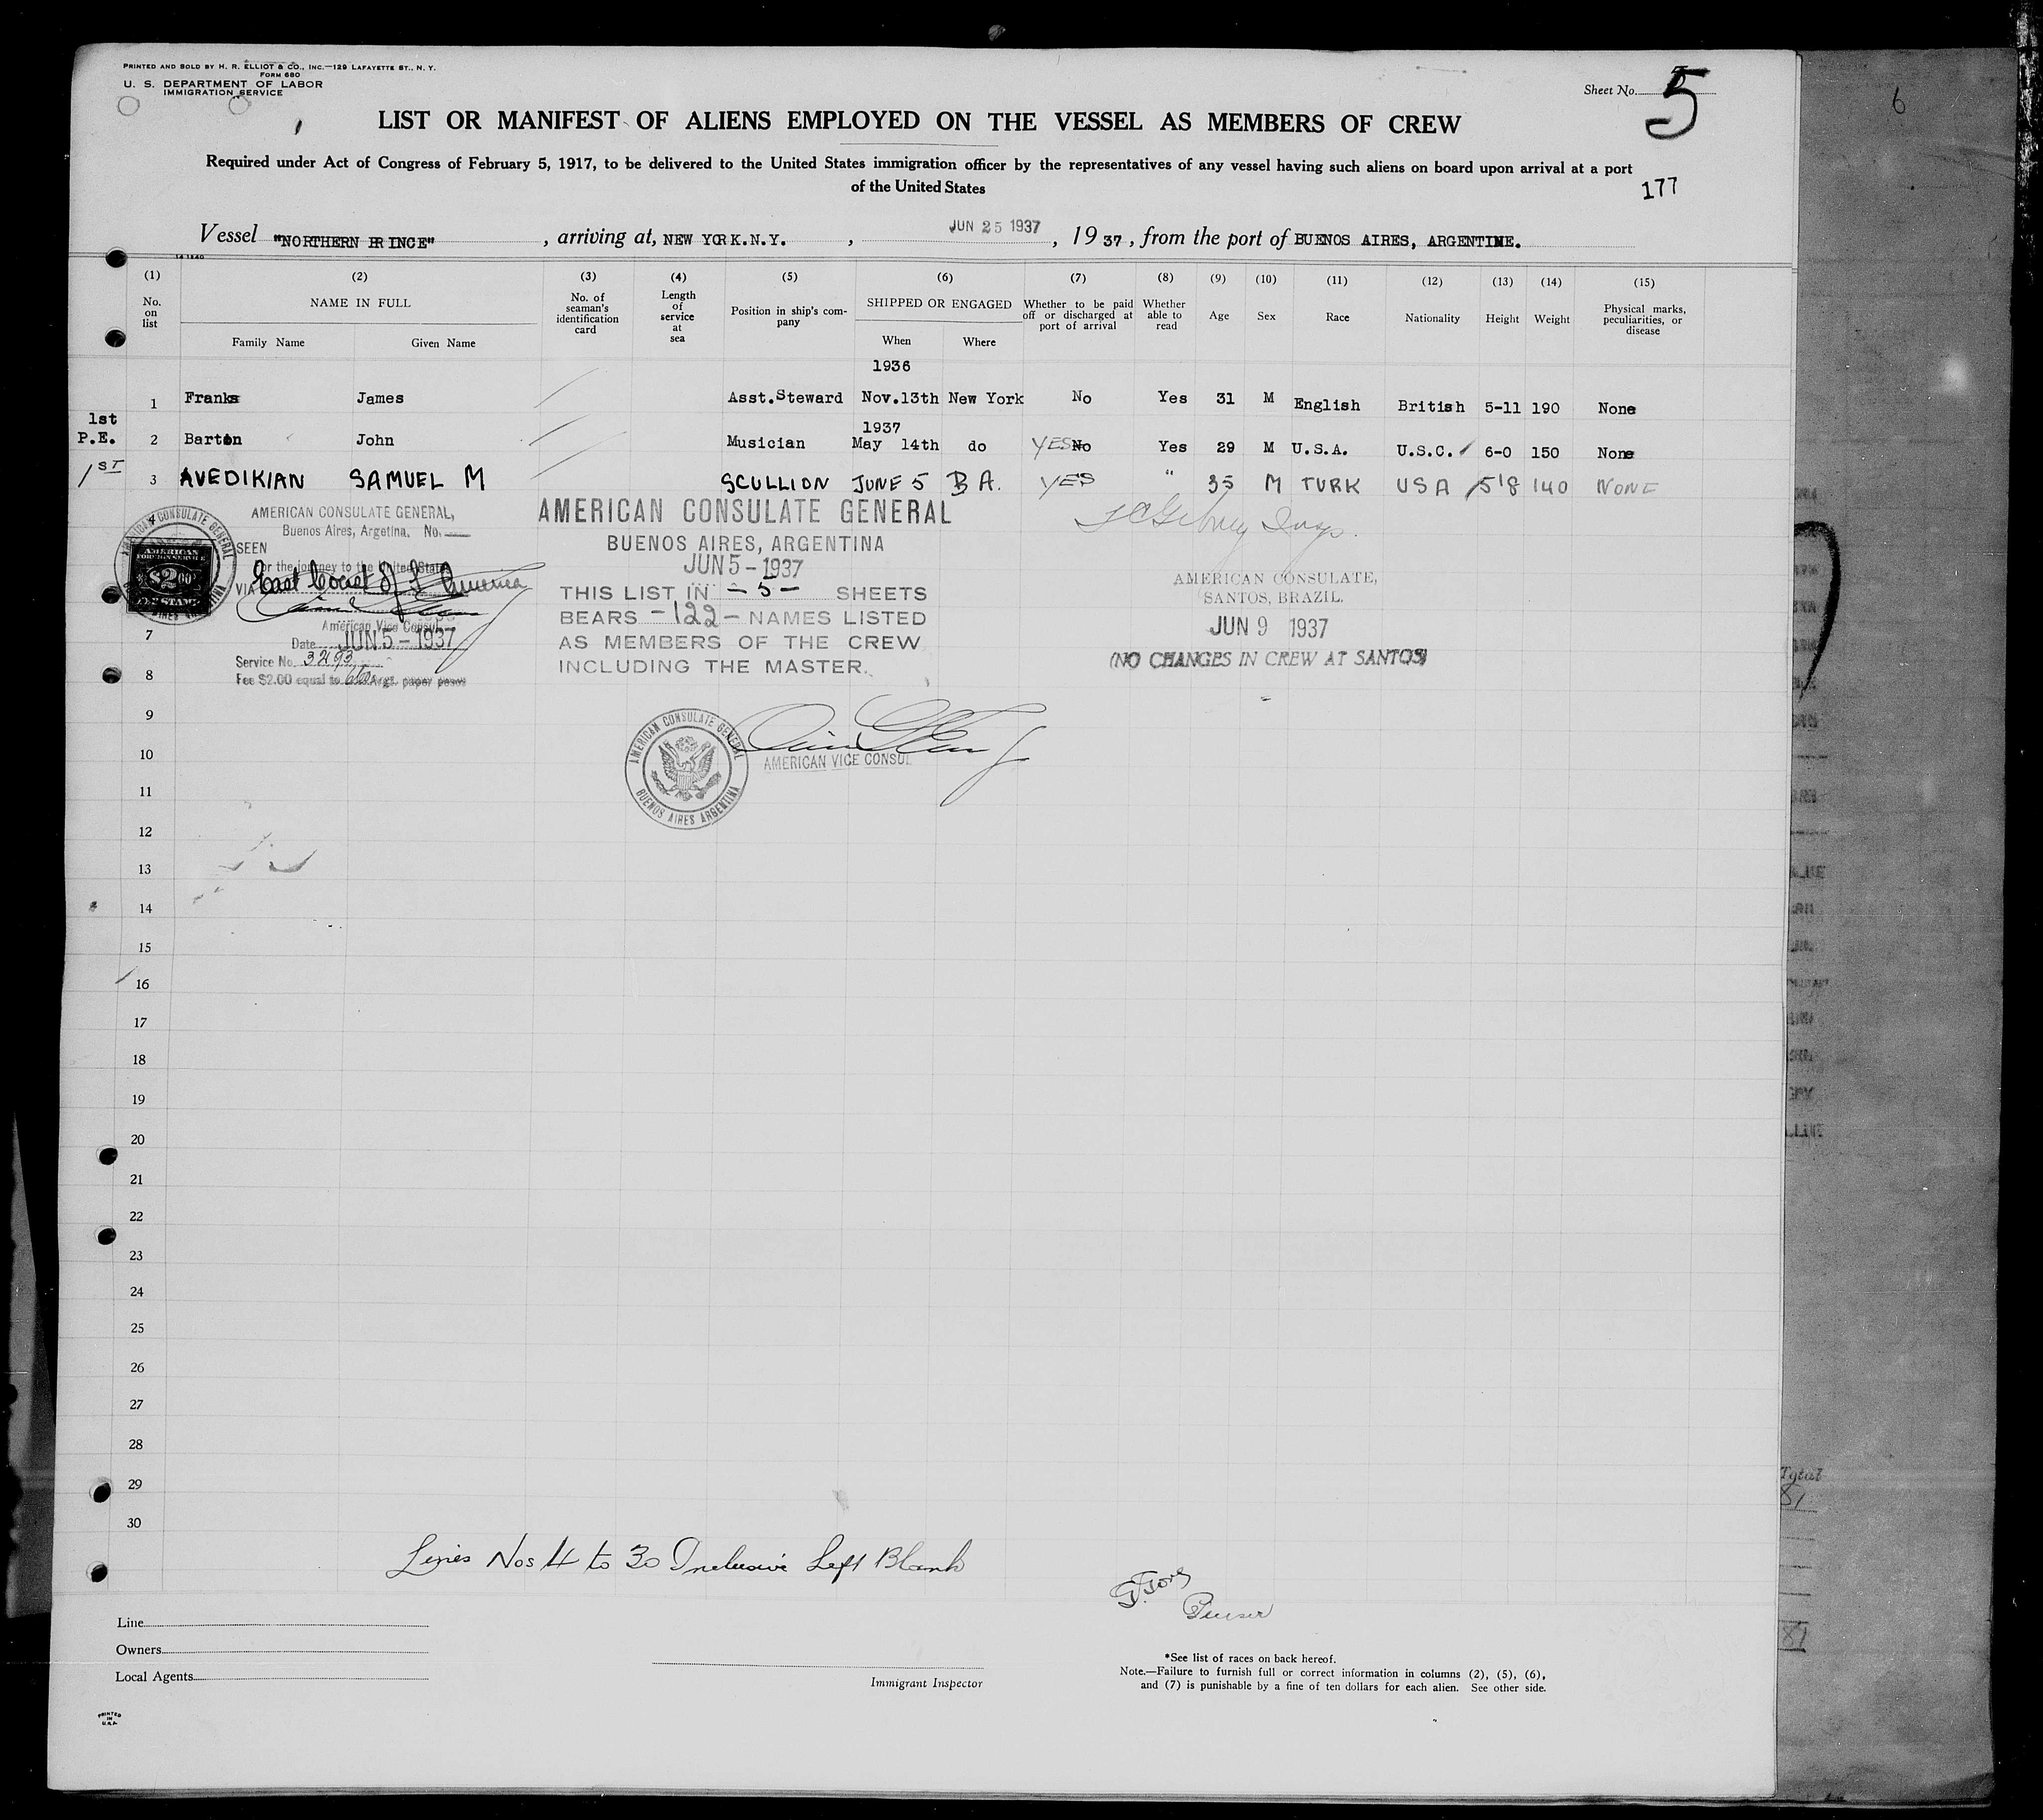 PRINTED AND SOLD BY H. R. ELLIOT & CO., INC.—129 LAFAYETTE ST., N. Y.
FORM 680
U. S. DEPARTMENT OF LABOR
IMMIGRATION SERVICE
Sheet No. 5
LIST OR MANIFEST OF ALIENS EMPLOYED ON THE VESSEL AS MEMBERS OF CREW
Required under Act of Congress of February 5, 1917, to be delivered to the United States immigration officer by the representatives of any vessel having such aliens on board upon arrival at a port
of the United States
177
Vessel "NORTHERN PRINCE", arriving at, NEW YORK.N.Y., JUN 25 1937, 1937, from the port of BUENOS AIRES, ARGENTINE.
(1) (2) (3) (4) (5) (6) (7) (8) (9) (10) (11) (12) (13) (14) (15)
No. on list NAME IN FULL No. of seaman's identification card Length of service at sea Position in ship's company SHIPPED OR ENGAGED Whether to be paid off or discharged at port of arrival Whether able to read Age Sex Race Nationality Height Weight Physical marks, peculiarities, or disease
Family Name Given Name When Where
1936
1 Franks James Asst.Steward Nov.13th New York No Yes 31 M English British 5-11 190 None
1937
1st P.E. 2 Barton John Musician May 14th do YES No Yes 29 M U.S.A. U.S.C. 6-0 150 None
1ST 3 AVEDIKIAN SAMUEL M SCULLION JUNE 5 B A. YES " 35 M TURK USA 5'8 140 NONE
AMERICAN CONSULATE GENERAL,
Buenos Aires, Argetina. No.
SEEN
For the journey to the United States
VIA East Coast of S. America
American Vice Consul
Date JUN 5 - 1937
Service No. 3293
Fee $2.00 equal to Argt. paper pesos
AMERICAN CONSULATE GENERAL
AMERICAN
FOREIGN SERVICE
$2.00
FEE STAMP
AMERICAN CONSULATE GENERAL
BUENOS AIRES, ARGENTINA
JUN 5 - 1937
THIS LIST IN - 5 - SHEETS
BEARS - 122 - NAMES LISTED
AS MEMBERS OF THE CREW
INCLUDING THE MASTER.
AMERICAN VICE CONSUL
AMERICAN CONSULATE GENERAL
BUENOS AIRES ARGENTINA
AMERICAN CONSULATE,
SANTOS, BRAZIL.
JUN 9 1937
(NO CHANGES IN CREW AT SANTOS)
7
8
9
10
11
12
13
14
15
16
17
18
19
20
21
22
23
24
25
26
27
28
29
30
Lines Nos 4 to 30 Inclusive Left Blank
Purser
Line
Owners
Local Agents
Immigrant Inspector
*See list of races on back hereof.
Note.—Failure to furnish full or correct information in columns (2), (5), (6),
and (7) is punishable by a fine of ten dollars for each alien. See other side.
PRINTED
IN
U.S.A.
6
Total
81
81